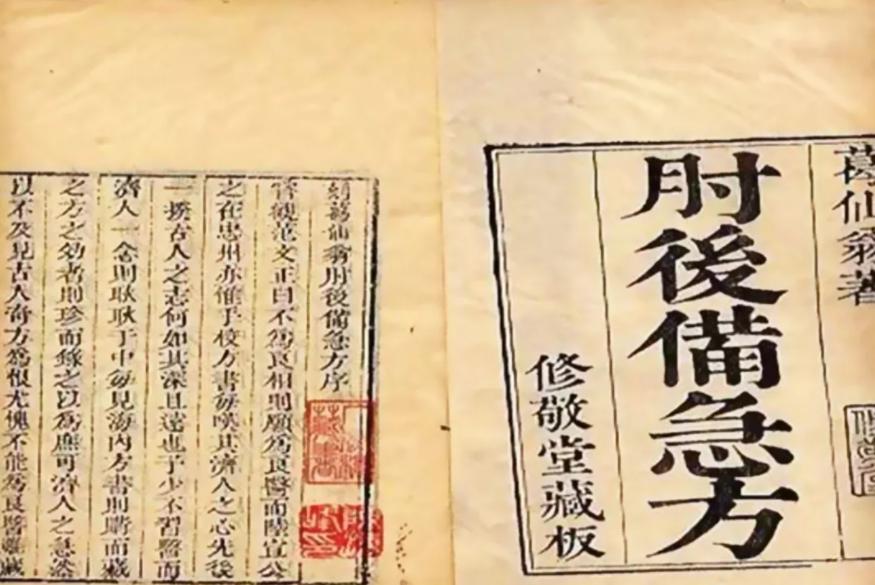 葛仙翁著
肘後備急方
修敬堂藏板
刻葛仙翁肘後備急方序
嘗觀范文正曰不爲良相則願爲良醫而陸宣公
之在忠州亦惟手校方書每嘆其濟人之心先後
一揆古人之志何如其深且遠也予少不習醫而
濟人一念則耿耿于中每見海內方書則購而藏
之方之效者則珍而錄之以爲庶可濟人之急然
以不及見古人奇方爲恨尤愧不能爲良醫雖藏